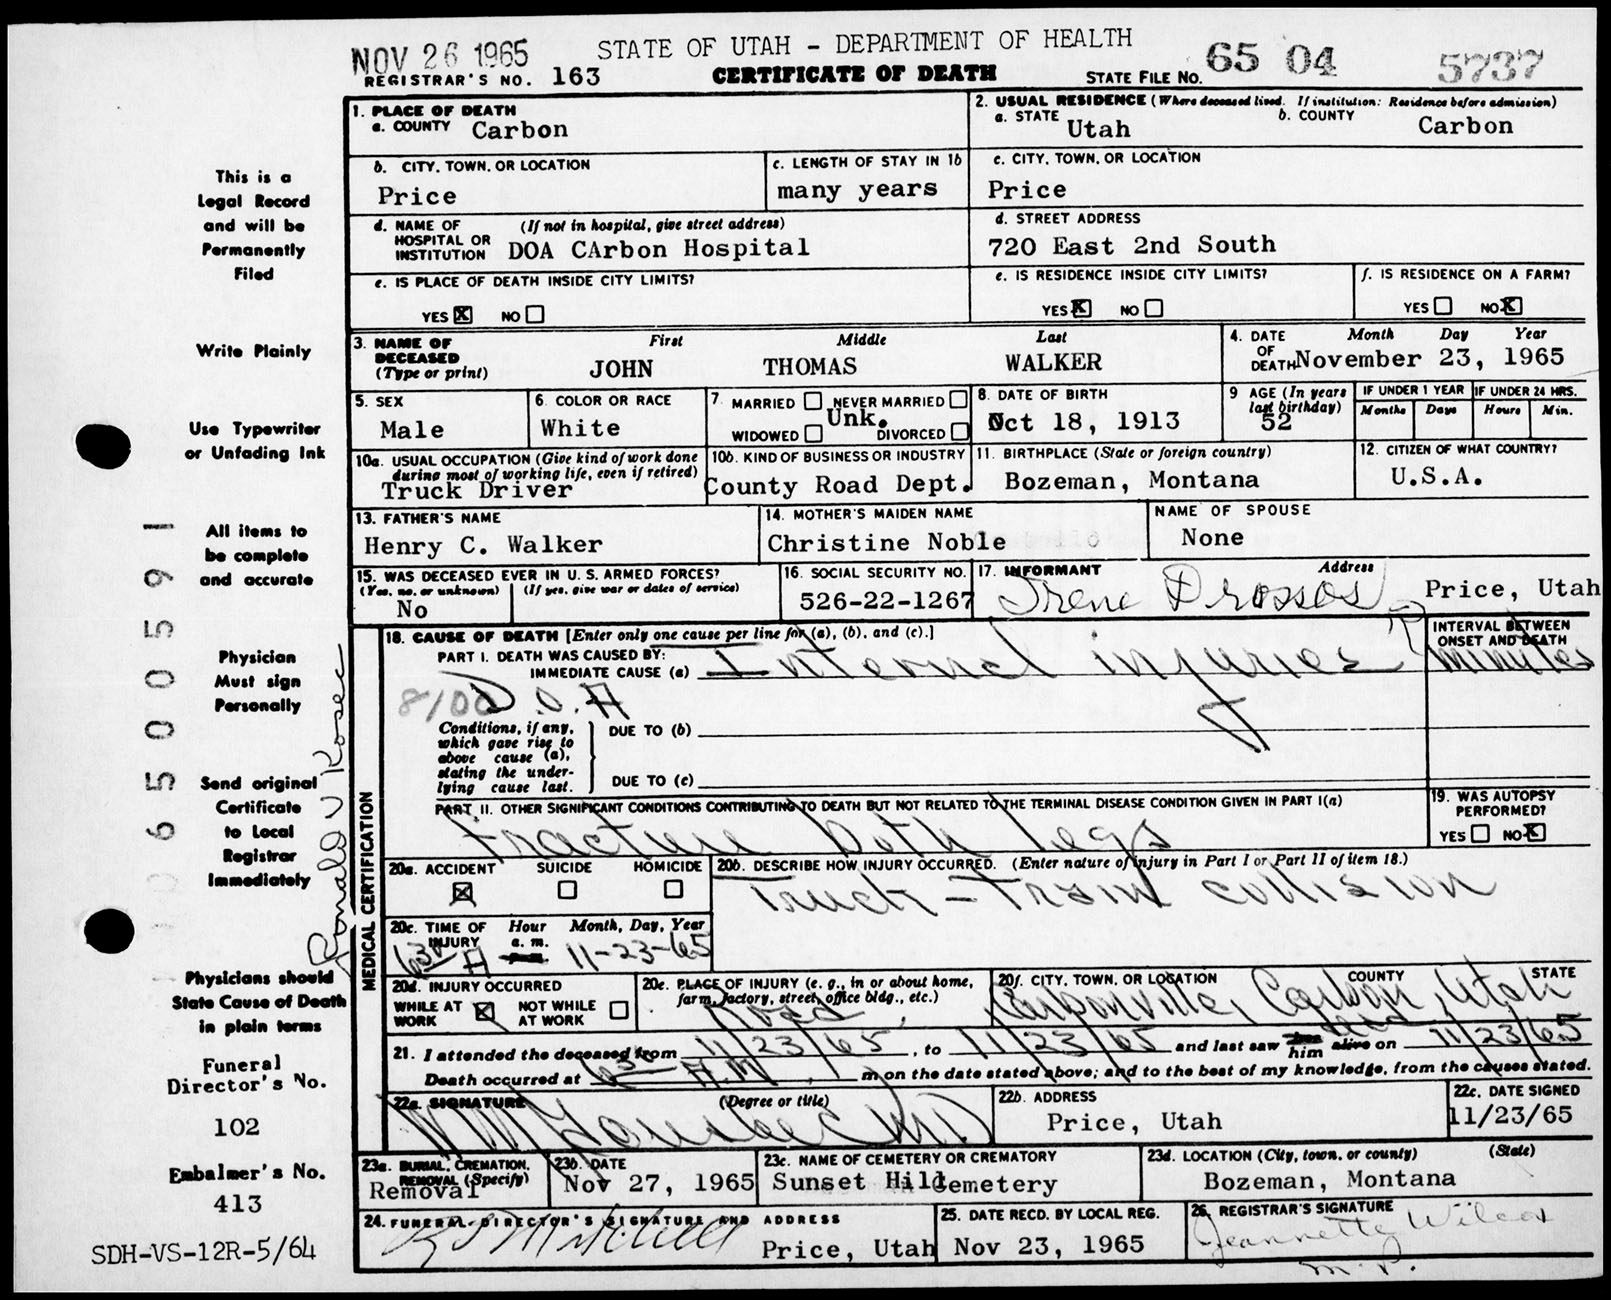 NOV 26 1965 STATE OF UTAH – DEPARTMENT OF HEALTH 65 04 5737
REGISTRAR'S NO. 163 CERTIFICATE OF DEATH STATE FILE NO.
1. PLACE OF DEATH
a. COUNTY Carbon
2. USUAL RESIDENCE (Where deceased lived. If institution: Residence before admission)
a. STATE Utah b. COUNTY Carbon
b. CITY, TOWN, OR LOCATION
Price
c. LENGTH OF STAY IN 1b
many years
c. CITY, TOWN, OR LOCATION
Price
d. NAME OF HOSPITAL OR INSTITUTION (If not in hospital, give street address)
DOA CArbon Hospital
d. STREET ADDRESS
720 East 2nd South
e. IS PLACE OF DEATH INSIDE CITY LIMITS?
YES X NO
e. IS RESIDENCE INSIDE CITY LIMITS?
YES X NO
f. IS RESIDENCE ON A FARM?
YES NO X
3. NAME OF DECEASED (Type or print) First Middle Last
JOHN THOMAS WALKER
4. DATE OF DEATH Month Day Year
November 23, 1965
5. SEX
Male
6. COLOR OR RACE
White
7. MARRIED NEVER MARRIED
Unk.
WIDOWED DIVORCED
8. DATE OF BIRTH
Oct 18, 1913
9 AGE (In years last birthday)
52
IF UNDER 1 YEAR IF UNDER 24 HRS.
Months Days Hours Min.
10a. USUAL OCCUPATION (Give kind of work done during most of working life, even if retired)
Truck Driver
10b. KIND OF BUSINESS OR INDUSTRY
County Road Dept.
11. BIRTHPLACE (State or foreign country)
Bozeman, Montana
12. CITIZEN OF WHAT COUNTRY?
U.S.A.
13. FATHER'S NAME
Henry C. Walker
14. MOTHER'S MAIDEN NAME
Christine Noble
NAME OF SPOUSE
None
15. WAS DECEASED EVER IN U.S. ARMED FORCES?
(Yes, no, or unknown) (If yes, give war or dates of service)
No
16. SOCIAL SECURITY NO.
526-22-1267
17. INFORMANT Address
Irene Drossos Price, Utah
MEDICAL CERTIFICATION
18. CAUSE OF DEATH [Enter only one cause per line for (a), (b), and (c).]
INTERVAL BETWEEN ONSET AND DEATH
PART I. DEATH WAS CAUSED BY:
IMMEDIATE CAUSE (a) Internal injuries minutes
8100 D.O.A
Conditions, if any, which gave rise to above cause (a), stating the underlying cause last.
DUE TO (b)
DUE TO (c)
PART II. OTHER SIGNIFICANT CONDITIONS CONTRIBUTING TO DEATH BUT NOT RELATED TO THE TERMINAL DISEASE CONDITION GIVEN IN PART I(a)
Fracture both legs
19. WAS AUTOPSY PERFORMED?
YES NO X
20a. ACCIDENT SUICIDE HOMICIDE
X
20b. DESCRIBE HOW INJURY OCCURRED. (Enter nature of injury in Part I or Part II of item 18.)
Truck – Train collision
20c. TIME OF INJURY Hour a. m. p. m. Month, Day, Year
6 30 A 11-23-65
20d. INJURY OCCURRED
WHILE AT WORK X NOT WHILE AT WORK
20e. PLACE OF INJURY (e. g., in or about home, farm, factory, street, office bldg., etc.)
Road
20f. CITY, TOWN, OR LOCATION COUNTY STATE
Carbonville, Carbon, Utah
21. I attended the deceased from 11/23/65, to 11/23/65 and last saw him alive dead on 11/23/65
Death occurred at 6 30 A.M, m on the date stated above; and to the best of my knowledge, from the causes stated.
22a. SIGNATURE (Degree or title)
22b. ADDRESS
Price, Utah
22c. DATE SIGNED
11/23/65
23a. BURIAL, CREMATION, REMOVAL (Specify)
Removal
23b. DATE
Nov 27, 1965
23c. NAME OF CEMETERY OR CREMATORY
Sunset Hill Cemetery
23d. LOCATION (City, town, or county) (State)
Bozeman, Montana
24. FUNERAL DIRECTOR'S SIGNATURE AND ADDRESS
Mitchell Price, Utah
25. DATE RECD. BY LOCAL REG.
Nov 23, 1965
26. REGISTRAR'S SIGNATURE
Jeannette Wilcox
M.P.
This is a
Legal Record
and will be
Permanently
Filed
Write Plainly
Use Typewriter
or Unfading Ink
All items to
be complete
and accurate
Physician
Must sign
Personally
Send original
Certificate
to Local
Registrar
Immediately
Physicians should
State Cause of Death
in plain terms
Funeral
Director's No.
102
Embalmer's No.
413
SDH-VS-12R-5/64
Ronald V Kosec